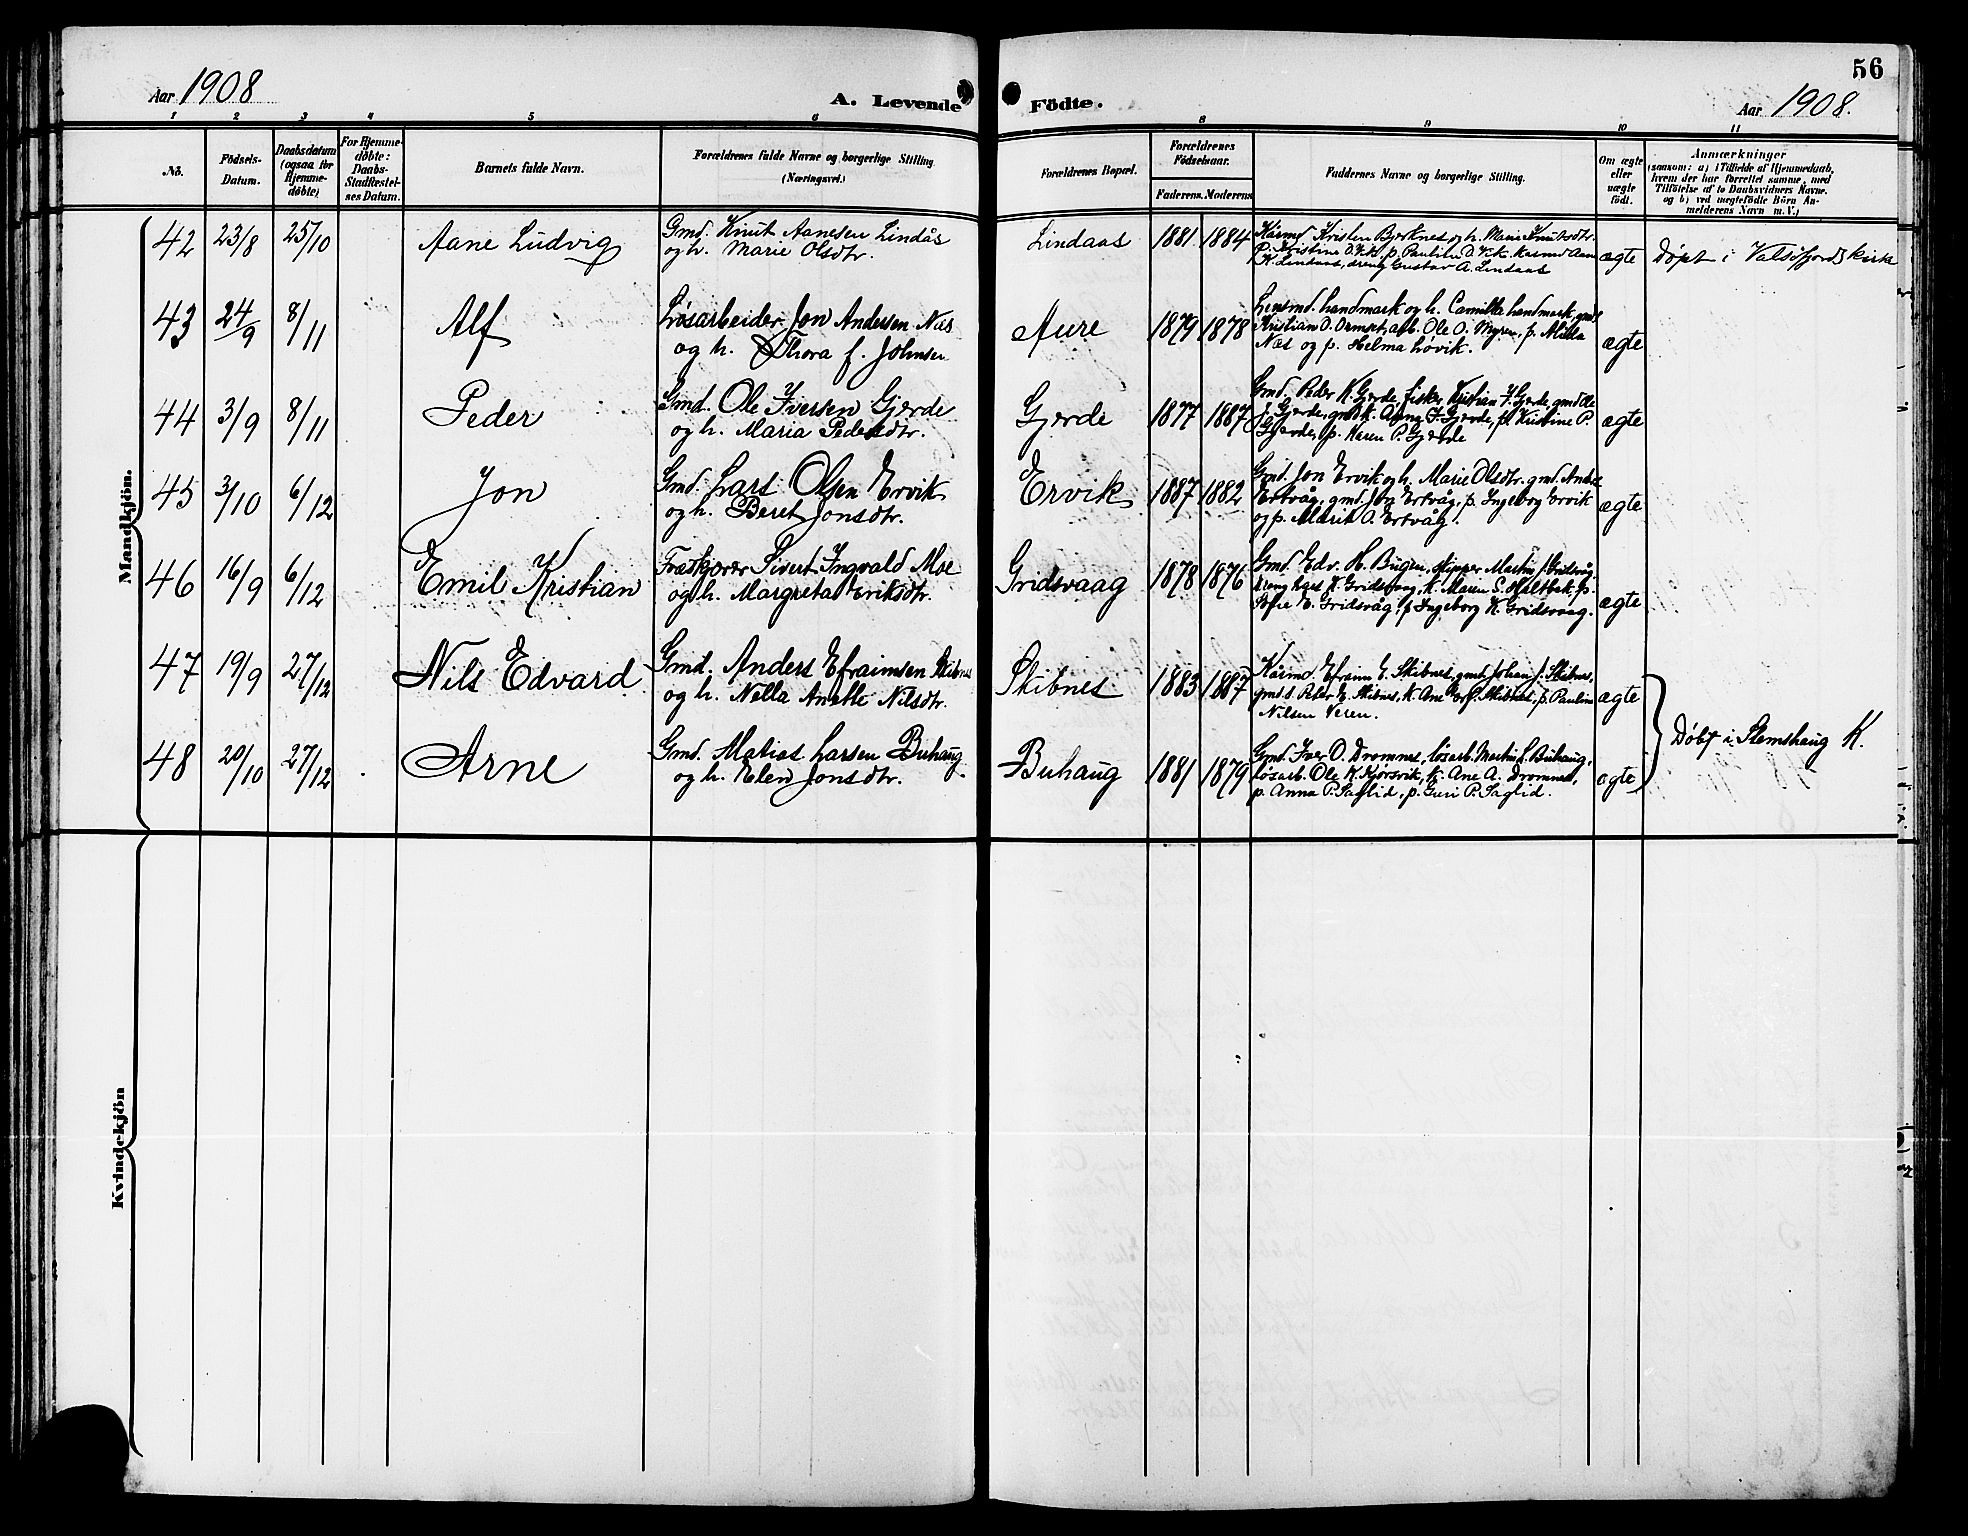 56
Aar 1908
A. Levende Födte.
Aar 1908.
1 2 3 4 5 6 8 9 10 11
No.
Födsels-Datum.
Daabsdatum (ogsaa for Hjemme-döbte)
For Hjemme-döbte: Daabs-Stadfæstel-ses Datum.
Barnets fulde Navn.
Forældrenes fulde Navne og borgerlige Stilling. (Næringsvei.)
Forældrenes Bopæl.
Forældrenes Födselsaar.
Faderens. Moderens
Faddernes Navne og borgerlige Stilling.
Om ægte eller uægte födt.
Anmærkninger
(saasom: a) i Tilfælde af Hjemmedaab,
hvem der har forrettet samme, med
Tilföielse af to Daabsvidners Navne,
og b) ved uægtefödte Börn An-
melderens Navn m. V.)
Mandkjön.
42 23/8 25/10 Aane Ludvig
Gmd. Knut Aanesen Lindås
og h. Marie Olsdtr.
Lindaas 1881 1884
Kårmd Kristen Bjerknes og h. Marie Knutsdtr.
P. Kristine O. Vik, p. Pauline O. Vik
K. Lindaas, dreng Gustav A. Lindaas
ægte Døpt i Valsøfjord kirke
43 24/9 8/11 Alf
Løsarbeider Jon Andersen Næs
og h. Thora f. Johnsen
Aure 1879 1878
Lensmd. Landmark og h. Camilla Landmark, gmd.
Kristian O. Ormset, arb. Ole O. Myren, p. Milda
Næs og p. Helma Løvik.
ægte
44 3/9 8/11 Peder
Gmd. Ole Iversen Gjerde
og h. Maria Pedersdtr.
Gjerde 1877 1887
Gmd. Peder K. Gjerde, fisker Kristian I. Gjerde, gmd Ole
J. Gjerde, gmdk. Anna I. Gjerde, p. Kristine P.
Gjerde, p. Karen P. Gjerde
ægte
45 3/10 6/12 Jon
Gmd. Lars Olsen Ervik
og h. Beret Jonsdtr.
Ervik 1887 1882
Gmd. Jon Ervik og h. Marie Olsdtr. gmd.
Ertvåg, gmd. Jon Ertvåg, p. Ingeborg Ervik
og p. Marit O. Ertvåg.
ægte
46 16/9 6/12 Emil Kristian
Sivert Ingvald Moe
og h. Margreta Eriksdtr.
Gridsvaag 1878 1876
Gmd. Edv. H. Bugen, skipper Martin Gridsvåg,
dreng Lars K. Gridsvaag, K. Maren S. Holtbak, p.
Sofie E. Gridsvåg, p. Ingeborg K. Gridsvaag.
ægte
47 19/9 27/12 Nils Edvard
Gmd. Anders Efraimsen Skibnes
og h. Nella Anette Nilsdtr.
Skibnes 1883 1887
Kårmd. Efraim E. Skibnes, gmd. Johan J. Skibnes,
gmds. Peter E. Skibnes, K. Ane Skibnes, p. Pauline
Nilsen Veren.
ægte
Døbt i Stemshaug K.
48 20/10 27/12 Arne
Gmd. Matias Larsen Buhaug
og h. Elen Jonsdtr.
Buhaug 1881 1879
Gmd. Iver O. Dromnes, løsarb. Martin L. Buhaug,
løsarb. Ole K. Kjørsvik, K. Ane A. Dromnes,
p. Anna P. Saglid, p. Guri P. Saglid.
ægte
Kvindekjön